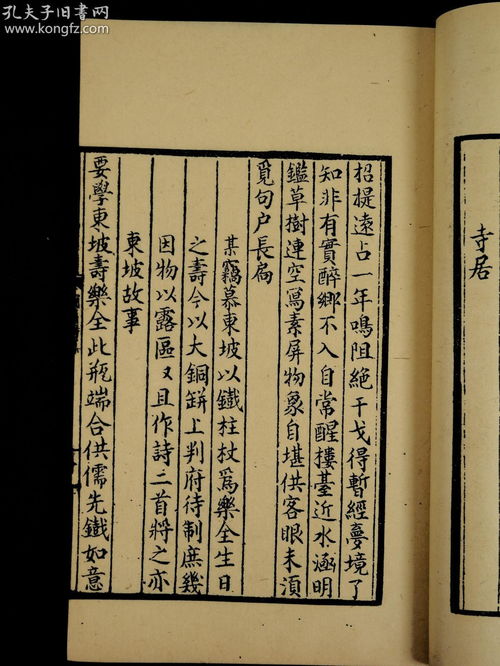 孔夫子旧书网
www.kongfz.com
寺居
招提遠占一年鳴阻絕干戈得暫經夢境了
知非有實醉鄉不入自常醒樓臺近水涵明
鑑草樹連空寫素屏物象自堪供客眼未須
覓句户長扃
某竊慕東坡以鐵柱杖爲樂全生日
之壽今以大銅缾上判府待制庶幾
因物以露區又且作詩三首將之亦
東坡故事
要學東坡壽樂全此瓶端合供儒先鐵如意